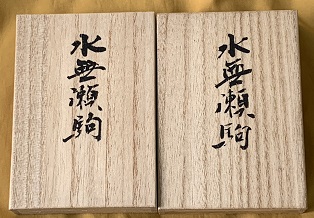 水無瀬駒
水無瀬駒